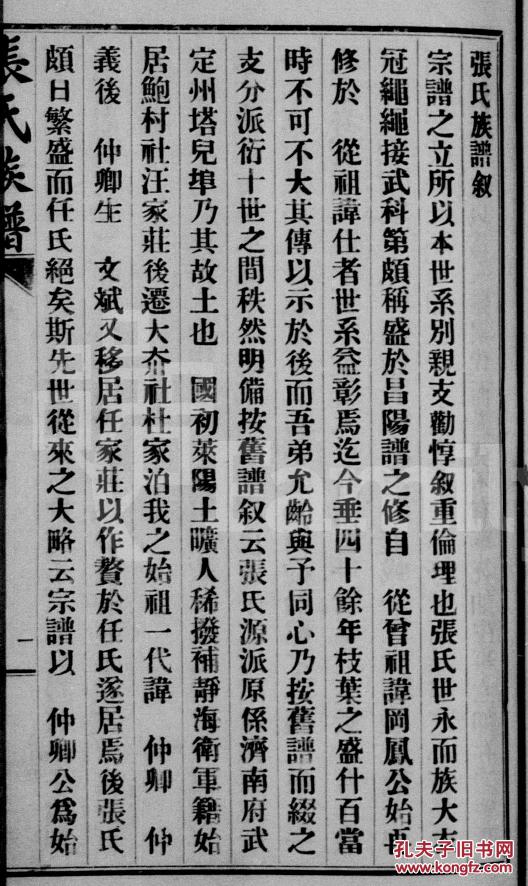 張氏族譜叙
宗譜之立所以本世系別親支勸惇叙重倫理也張氏世永而族大衣
冠繩繩接武科第頗稱盛於昌陽譜之修自　從曾祖諱岡鳳公始再
修於　從祖諱仕者世系益彰焉迄今垂四十餘年枝葉之盛什百當
時不可不大其傳以示於後而吾弟允齡與予同心乃按舊譜而綴之
支分派衍十世之間秩然明備按舊譜叙云張氏源派原係濟南府武
定州塔兒埠乃其故土也　國初萊陽土曠人稀撥補靜海衛軍籍始
居鮑村社汪家莊後遷大夼社杜家泊我之始祖一代諱　仲卿　仲
義後　仲卿生　文斌又移居任家莊以作贅於任氏遂居焉後張氏
頗日繁盛而任氏絕矣斯先世從來之大略云宗譜以　仲卿公爲始
張氏族譜
一
孔夫子旧书网
www.kongfz.com